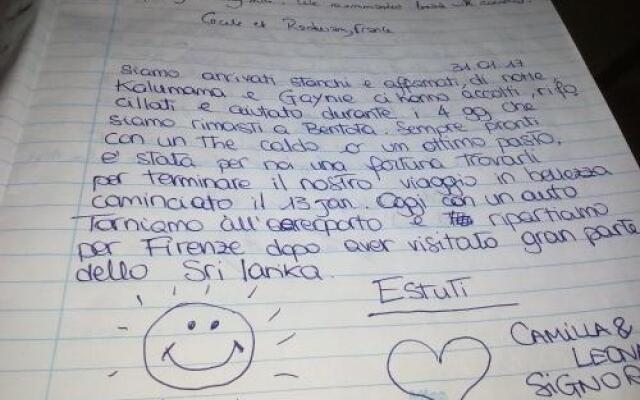 We recommended
31.01.17
Siamo arrivati stanchi e affamati, di notte,
Kalumama e Gaynie ci hanno accolti, rifo
cillati e aiutato durante i 4 gg che
siamo rimasti a Bentota. Sempre pronti
con un The caldo o un ottimo pasto,
e' stata per noi una fortuna trovarli
per terminare il nostro viaggio in bellezza
cominciato il 13 Jan. Oggi con un auto
Torniamo all'aereoporto e ripartiamo
per Firenze dopo aver visitato gran parte
dello Sri lanka.
ESTUTI
CAMILLA &
LEONA
SIGNOR